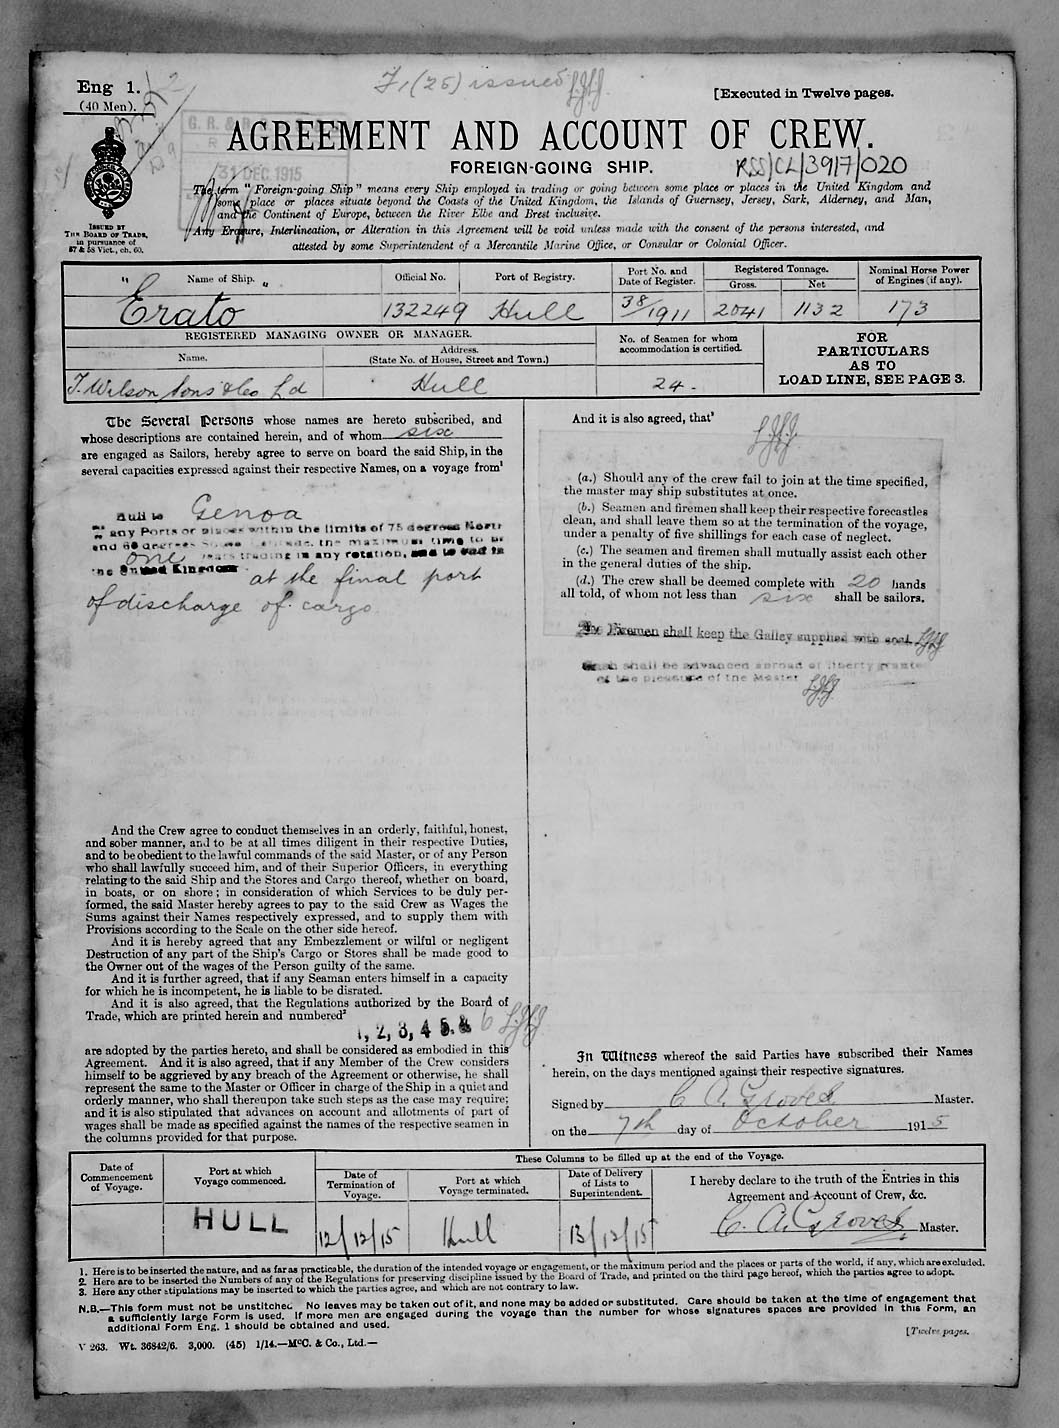 Eng 1.
(40 Men).
(25) issued
[Executed in Twelve pages.
G. R. &
31 DEC. 1915
AGREEMENT AND ACCOUNT OF CREW.
FOREIGN-GOING SHIP.
RSS/CL/3917/020
ISSUED BY
THE BOARD OF TRADE,
in pursuance of
57 & 58 Vict., ch. 60.
The term "Foreign-going Ship" means every Ship employed in trading or going between some place or places in the United Kingdom and
some place or places situate beyond the Coasts of the United Kingdom, the Islands of Guernsey, Jersey, Sark, Alderney, and Man,
and the Continent of Europe, between the River Elbe and Brest inclusive.
Any Erasure, Interlineation, or Alteration in this Agreement will be void unless made with the consent of the persons interested, and
attested by some Superintendent of a Mercantile Marine Office, or Consular or Colonial Officer.
" Name of Ship. "
Official No.
Port of Registry.
Port No. and
Date of Register.
Registered Tonnage.
Gross.
Net
Nominal Horse Power
of Engines (if any).
Erato
132249
Hull
38/1911
2041
1132
173
REGISTERED MANAGING OWNER OR MANAGER.
Name.
Address.
(State No. of House, Street and Town.)
No. of Seamen for whom
accommodation is certified.
FOR
PARTICULARS
AS TO
LOAD LINE, SEE PAGE 3.
T. Wilson Sons & Co Ld
Hull
24 -
The Several Persons whose names are hereto subscribed, and
whose descriptions are contained herein, and of whom six
are engaged as Sailors, hereby agree to serve on board the said Ship, in the
several capacities expressed against their respective Names, on a voyage from¹
Hull to Genoa
any Ports or places within the limits of 75 degrees North
and 60 degrees the maximum time to be
one years trading in any rotation, and to end in
the United Kingdom at the final port
of discharge of cargo.
And the Crew agree to conduct themselves in an orderly, faithful, honest,
and sober manner, and to be at all times diligent in their respective Duties,
and to be obedient to the lawful commands of the said Master, or of any Person
who shall lawfully succeed him, and of their Superior Officers, in everything
relating to the said Ship and the Stores and Cargo thereof, whether on board,
in boats, or on shore; in consideration of which Services to be duly per-
formed, the said Master hereby agrees to pay to the said Crew as Wages the
Sums against their Names respectively expressed, and to supply them with
Provisions according to the Scale on the other side hereof.
And it is hereby agreed that any Embezzlement or wilful or negligent
Destruction of any part of the Ship's Cargo or Stores shall be made good to
the Owner out of the wages of the Person guilty of the same.
And it is further agreed, that if any Seaman enters himself in a capacity
for which he is incompetent, he is liable to be disrated.
And it is also agreed, that the Regulations authorized by the Board of
Trade, which are printed herein and numbered²
1, 2, 3, 4 5. & 6
are adopted by the parties hereto, and shall be considered as embodied in this
Agreement. And it is also agreed, that if any Member of the Crew considers
himself to be aggrieved by any breach of the Agreement or otherwise, he shall
represent the same to the Master or Officer in charge of the Ship in a quiet and
orderly manner, who shall thereupon take such steps as the case may require;
and it is also stipulated that advances on account and allotments of part of
wages shall be made as specified against the names of the respective seamen in
the columns provided for that purpose.
And it is also agreed, that³
(a.) Should any of the crew fail to join at the time specified,
the master may ship substitutes at once.
(b.) Seamen and firemen shall keep their respective forecastles
clean, and shall leave them so at the termination of the voyage,
under a penalty of five shillings for each case of neglect.
(c.) The seamen and firemen shall mutually assist each other
in the general duties of the ship.
(d.) The crew shall be deemed complete with 20 hands
all told, of whom not less than six shall be sailors.
The Firemen shall keep the Galley supplied with coal.
Cash shall be advanced abroad or liberty granted
at the pleasure of the Master
In Witness whereof the said Parties have subscribed their Names
herein, on the days mentioned against their respective signatures.
Signed by C A. Groves Master.
on the 7th day of October 1915
Date of
Commencement
of Voyage.
Port at which
Voyage commenced.
These Columns to be filled up at the end of the Voyage.
Date of
Termination of
Voyage.
Port at which
Voyage terminated.
Date of Delivery
of Lists to
Superintendent.
I hereby declare to the truth of the Entries in this
Agreement and Account of Crew, &c.
HULL
12/12/15
Hull
13/12/15
C. A. Groves Master.
1. Here is to be inserted the nature, and as far as practicable, the duration of the intended voyage or engagement, or the maximum period and the places or parts of the world, if any, which are excluded.
2. Here are to be inserted the Numbers of any of the Regulations for preserving discipline issued by the Board of Trade, and printed on the third page hereof, which the parties agree to adopt.
3. Here any other stipulations may be inserted to which the parties agree, and which are not contrary to law.
N.B.—This form must not be unstitched. No leaves may be taken out of it, and none may be added or substituted. Care should be taken at the time of engagement that
a sufficiently large Form is used. If more men are engaged during the voyage than the number for whose signatures spaces are provided in this Form, an
additional Form Eng. 1 should be obtained and used.
[Twelve pages.
V 263. Wt. 36842/6. 3,000. (45) 1/14.—McC. & Co., Ltd.—